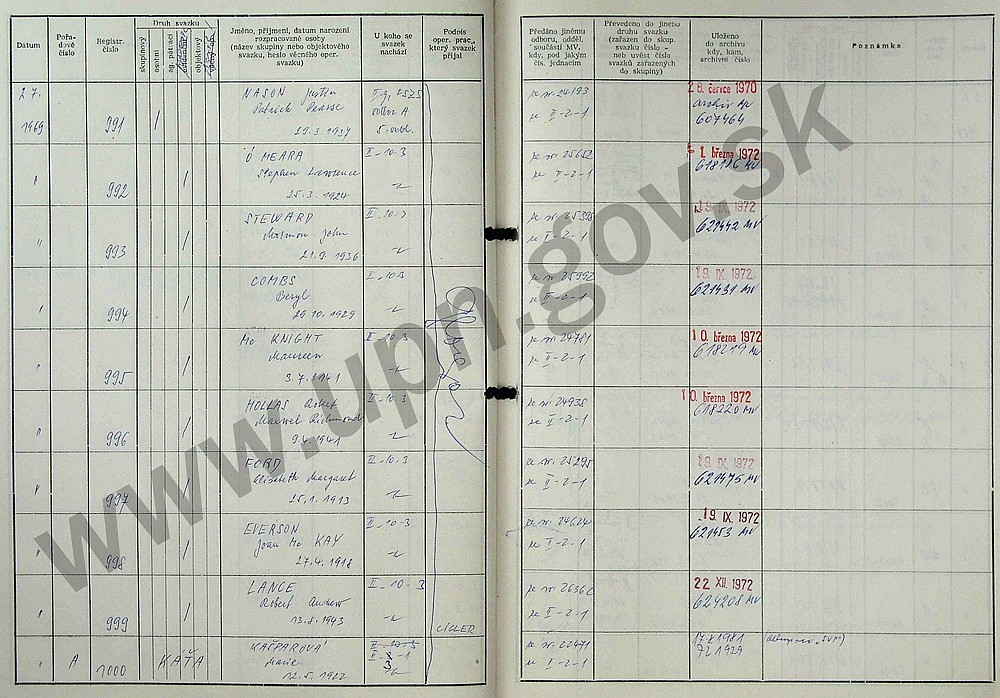 Datum
Pořa-
dové
číslo
Registr.
číslo
Druh svazku
skupinový
osobní
ag. pátrací
objektový
Jméno, příjmení, datum narození
rozpracované osoby
(název skupiny nebo objektového
svazku, heslo věcného oper.
svazku)
U koho se
svazek
nachází
Podpis
oper. prac.,
který svazek
přijal
Předáno jinému
odboru, odděl.
součásti MV,
kdy, pod jakým
čís. jednacím
Převedeno do jiného
druhu svazku
(zařazen do skup.
svazku číslo -
neb uvést čísla
svazků zařazených
do skupiny)
Uloženo
do archivu
kdy, kam,
archivní číslo
Poznámka
2.7.
1969
991
NASON Justin
Patrick Pearse
29.3.1937
odbor A
5. odděl.
pe nr. 24193
pe II-2-1
28. července 1970
archiv MV
607464
"
992
O MEARA
Stephen Lawrence
15.3.1924
II-10-3
pe nr. 25652
pe II-2-1
- 1. března 1972
618186 MV
"
993
STEWARD
John
21.9.1936
II-10-3
pe II-2-1
19. IX. 1972
621442 MV
"
994
COMBS
Beryl
29.10.1929
II-10-3
pe nr. 25992
pe II-2-1
19. IX. 1972
621431 MV
995
Mc KNIGHT
Maureen
3.7.1941
II-10-3
pe nr. 24781
pe II-2-1
10. března 1972
618219 MV
"
996
HOLLAS Robert
Maxwel Richmond
9.4.1941
II-10-3
pe nr. 24938
pe II-2-1
10. března 1972
618220 MV
"
997
FORD
Elisabeth Margaret
25.1.1913
II-10-3
pe nr. 25295
pe II-2-1
19. IX. 1972
621475 MV
"
998
EVERSON
Joan Mc KAY
27.4.1918
II-10-3
pe nr. 24624
pe II-2-1
19. IX. 1972
621453 MV
"
999
LANCE
Robert Andrew
13.8.1943
II-10-3
CÍGLER
pe nr. 26362
pe II-2-1
22. XII. 1972
624208 MV
"
A
1000
KÁŤA
KAŠPAROVÁ
Marie
12.5.1922
pe nr. 22471
pe II-2-1
17.8.1981
721929
www.upn.gov.sk